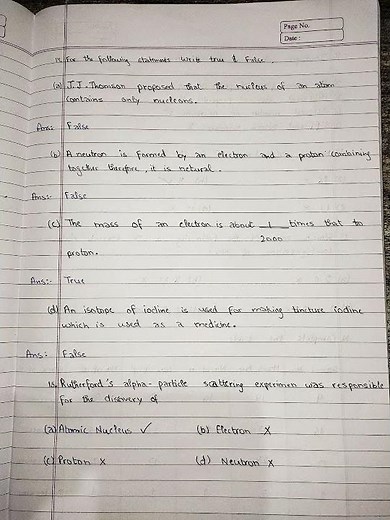 Page No.
Date:
17. For the following statements write true & False.
(a) J.J. Thomson proposed that the nucleus of an atom
contains only nucleons.
Ans: False
(b) A neutron is formed by an electron and a proton combining
together therefore, it is netural.
Ans:- False
(c) The mass of an electron is about 1 times that to
2000
proton.
Ans:- True
(d) An isotope of iodine is used for making tincture iodine
which is used as a medicine.
Ans: False
18. Rutherford's alpha-particle scattering experimen was responsible
for the disinvery of
(a) Atomic Nucleus ✓ (b) Electron X
(c) Proton X (d) Neutron X